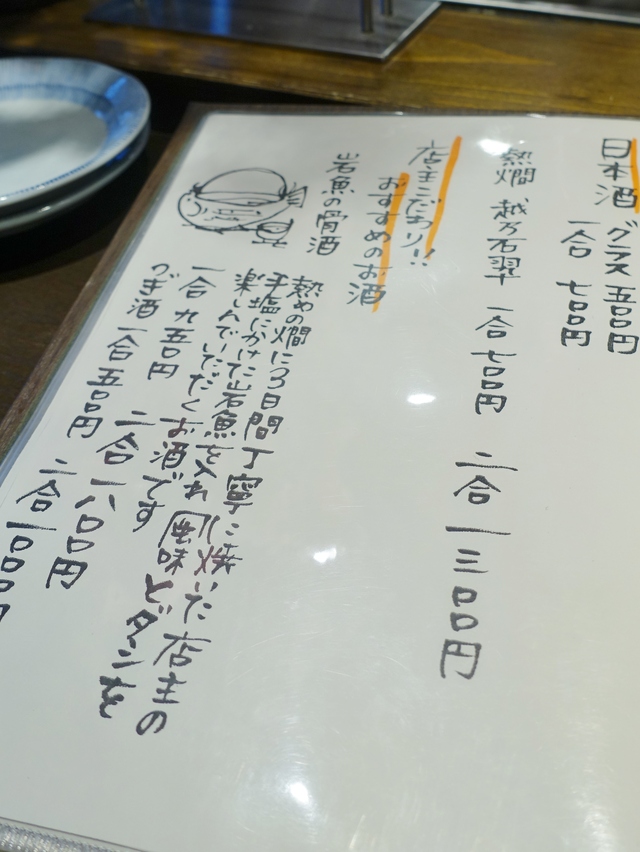 日本酒 グラス 五〇〇円
一合 七〇〇円
熱燗 一合 七〇〇円 二合 一三〇〇円
店主こだわり!!
おすすめのお酒
岩魚の骨酒
熱めの燗に3日間丁寧に焼いた店主の
手塩にかけた岩魚を入れ風味とダシを
楽しんでいただくお酒です
一合 九五〇円 二合 一八〇〇円
つぎ酒 一合 五〇〇円 二合 一〇〇〇円